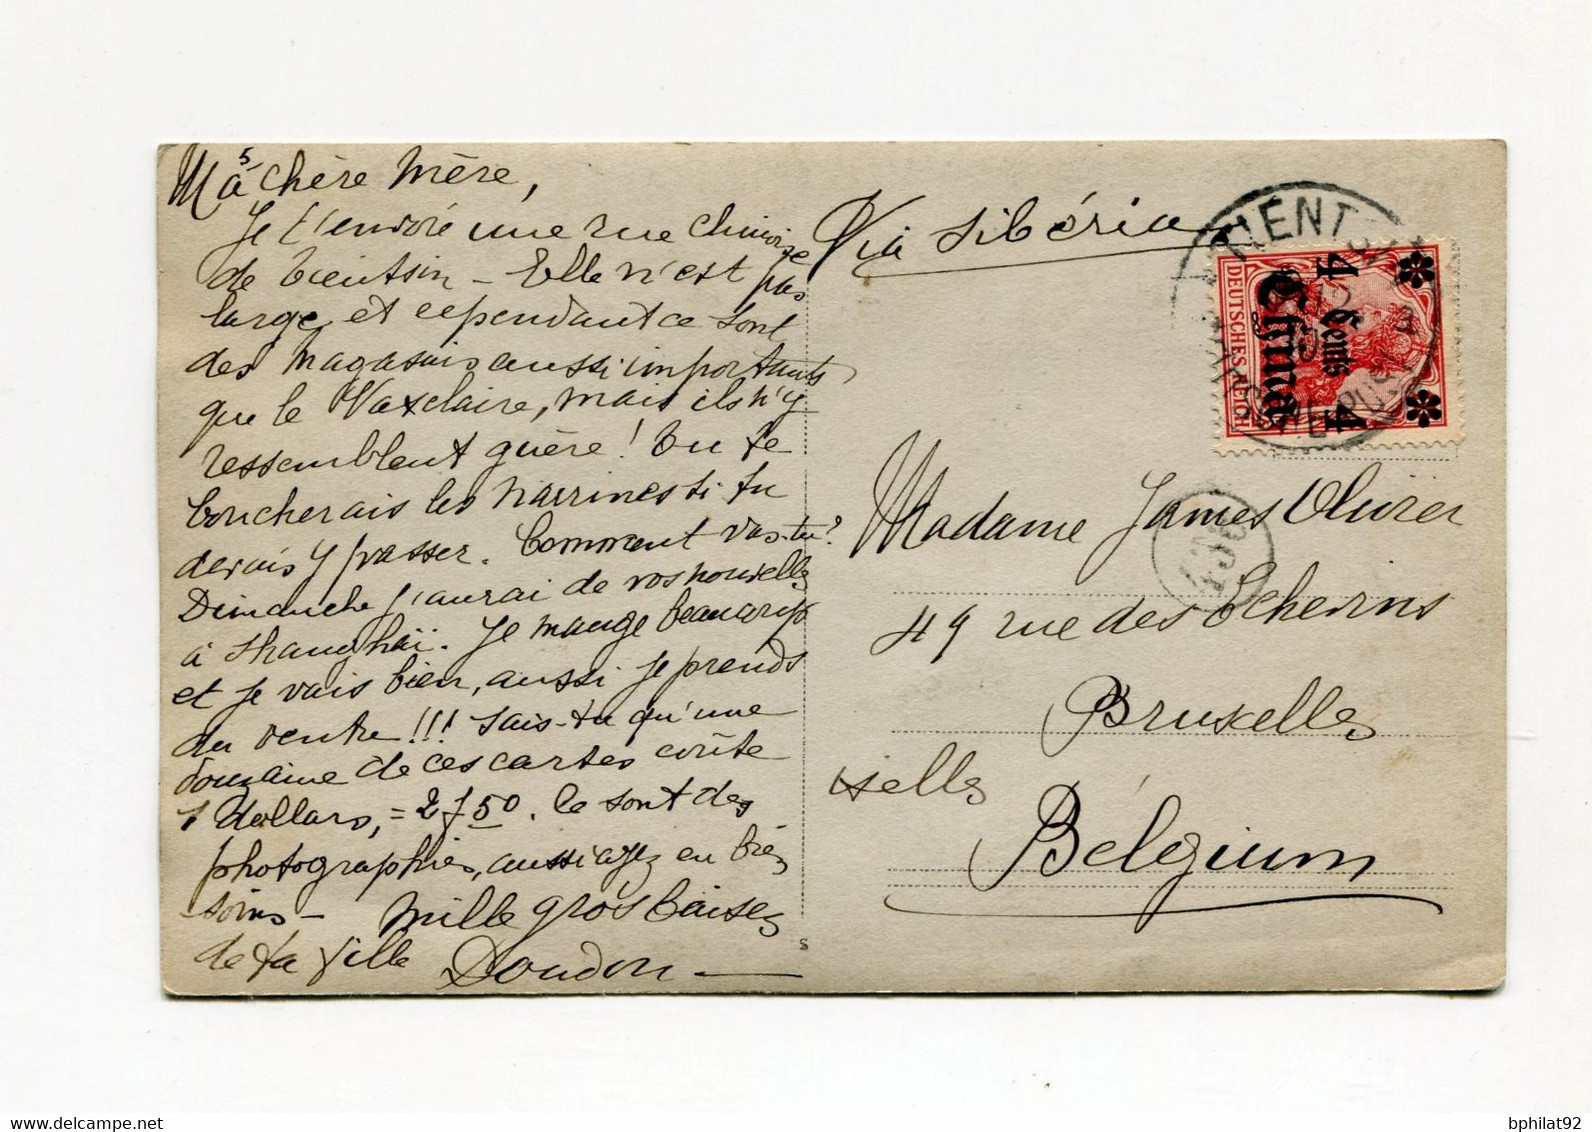 5
Ma chère Mère,
Je t'envoie une rue chinoise
de Tientsin - Elle n'est pas
large, et cependant ce sont
des magasins aussi importants
que le Vaxelaire, mais ils n'y
ressemblent guère! Tu te
boucherais les narrines si tu
devais y passer. Comment vas-tu?
Dimanche j'aurai de vos nouvelles
à Shanghaï. Je mange beaucoup
et je vais bien, aussi je prends
du ventre!!! Sais-tu qu'une
douzaine de ces cartes coûte
1 dollars, = 2 f 50. Ce sont des
photographies, aussi ayez en bien
soins - Mille gros baisers
de ta fille Doudon
Via Sibéria
TIENTSIN
DEUTSCHE POST
DEUTSCHES REICH
4 4
Cents
China
Madame James Olivier
49 rue des Echevins
Bruxelles
Ixelles
Bélgium
S
bphilat92